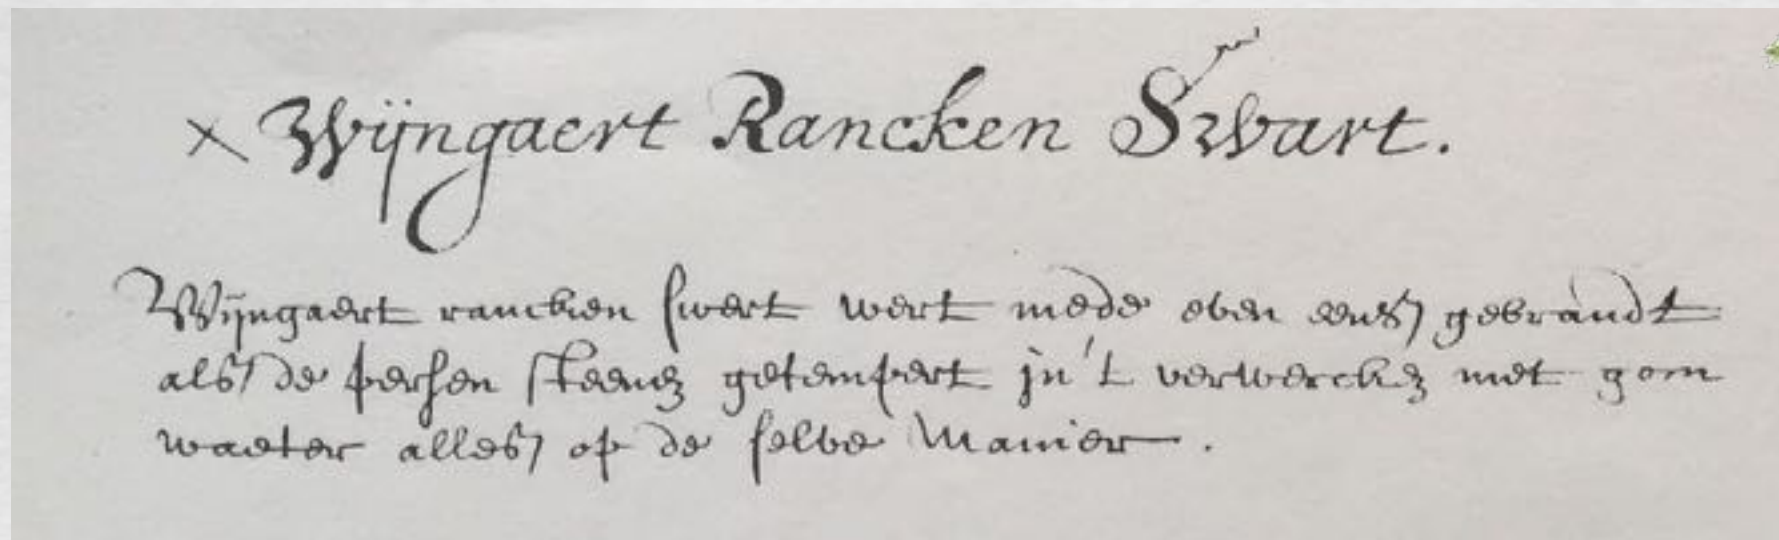 x Wijngaert Rancken Swart.
Wijngaert rancken swert wert mede even eens gebrandt
als de persen steenen getempert in't verwercken met gom
waeter alles op de selve manier.